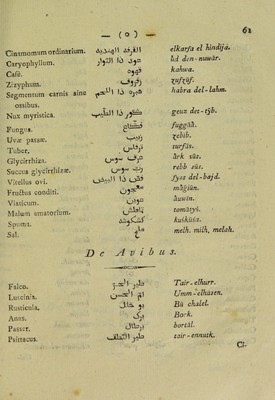 — ( ٥ ) —
61
Cinamomum ordinarium. القرفة الهندية elkarfa el hindija.
Caryophyllum. عود النوار ûd den-nuwâr.
Café. قهوة kahwa.
Zizyphum.
Segmentum carnis sine ossibus. habra del-lahm.
Nux myristica. geuz det-tŷb.
Fungus. fuggâh.
Uvæ passæ. زبيب zebîb.
Tuber. surfâs.
Glycirrhiza. عرق سوس ârk sûs.
Succus glycirrhizæ. رب سوس rebb sûs.
Vitellus ovi. fyss del-bajd.
Fructus conditi. معجون mâgiûn.
Viaticum. عوين âuwin.
Malum amatorium. tomâtys.
Spuma. kuskûsa.
Sal. ملح melh. milh, melah.
De Avibus.
Falco. طير الحر Tair-elhurr.
Luscinia. ام الحسن Umm-elhasen.
Rusticula. بو شلال Bû chalel.
Anas. برك Bork.
Passer. برطال bortâl.
Psittacus. tair-ennutk.
Cl.